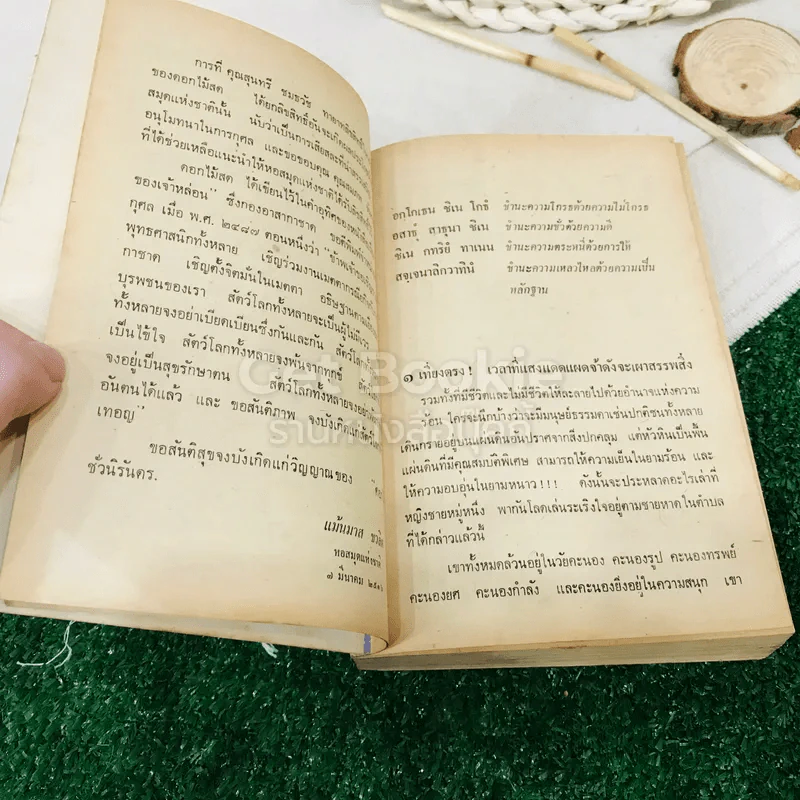 การที่ คุณสุนทรี ชมธวัช ทายาทลิขสิทธิ์
ของดอกไม้สด ได้ยกลิขสิทธิ์อันจะเกิด
สมุดแห่งชาตินั้น นับว่าเป็นการเสียสละที่น่าสรรเสริญ
อนุโมทนาในการกุศล และขอขอบคุณ คุณสมภพ
ที่ได้ช่วยเหลือแนะนำให้หอสมุดแห่งชาติได้รับลิขสิทธิ์
ดอกไม้สด ได้เขียนไว้ในคำอุทิศของหนังสือ
ของเจ้าหล่อน" ซึ่งกองอาสากาชาด ขอตีพิมพ์จำหน่าย
กุศล เมื่อ พ.ศ. ๒๔๘๗ ตอนหนึ่งว่า "ข้าพเจ้าขอ
พุทธศาสนิกทั้งหลาย เชิญร่วมงานเมตตากรณีย
กาชาด เชิญตั้งจิตมั่นในเมตตา อธิษฐานตาม
บุรพชนของเรา สัตว์โลกทั้งหลายจะเป็นผู้ไม่มีเวร
ทั้งหลายจงอย่าเบียดเบียนซึ่งกันและกัน สัตว์โลก
เป็นไข้ใจ สัตว์โลกทั้งหลายจงพ้นจากทุกข์ สัตว์
จงอยู่เป็นสุขรักษาตน สัตว์โลกทั้งหลายจงอย่า
อันตนได้แล้ว และ ขอสันติภาพ จงบังเกิดแก่สัตว์
เทอญ"
ขอสันติสุขจงบังเกิดแก่วิญญาณของ
ชั่วนิรันดร.
แม้นมาส ชวลิต
หอสมุดแห่งชาติ
๗ มีนาคม
อกฺโกเธน ชิเน โกธํ ชำนะความโกรธด้วยความไม่โกรธ
อสาธุํ สาธุนา ชิเน ชำนะความชั่วด้วยความดี
ชิเน กทริยํ ทาเนน ชำนะความตระหนี่ด้วยการให้
สจฺเจนาลิกวาทินํ ชำนะความเหลวไหลด้วยความเป็น
หลักฐาน
๑ เที่ยงตรง ! เวลาที่แสงแดดแผดจ้าดังจะเผาสรรพสิ่ง
รวมทั้งที่มีชีวิตและไม่มีชีวิตให้ละลายไปด้วยอำนาจแห่งความ
ร้อน ใครจะนึกบ้างว่าจะมีมนุษย์ธรรมดาเช่นปกติชนทั้งหลาย
เดินกรายอยู่บนแผ่นดินอันปราศจากสิ่งปกคลุม แต่หัวหินเป็นพื้น
แผ่นดินที่มีคุณสมบัติพิเศษ สามารถให้ความเย็นในยามร้อน และ
ให้ความอบอุ่นในยามหนาว ! ! ! ดังนั้นจะประหลาดอะไรเล่าที่
หญิงชายหมู่หนึ่ง พากันโลดเล่นระเริงใจอยู่ตามชายหาดในตำบล
ที่ได้กล่าวแล้วนี้
เขาทั้งหมดล้วนอยู่ในวัยคะนอง คะนองรูป คะนองทรัพย์
คะนองยศ คะนองกำลัง และคะนองยิ่งอยู่ในความสนุก เขา
Get Bookie
ร้านหนังสือเก็ตบุ๊คกี้